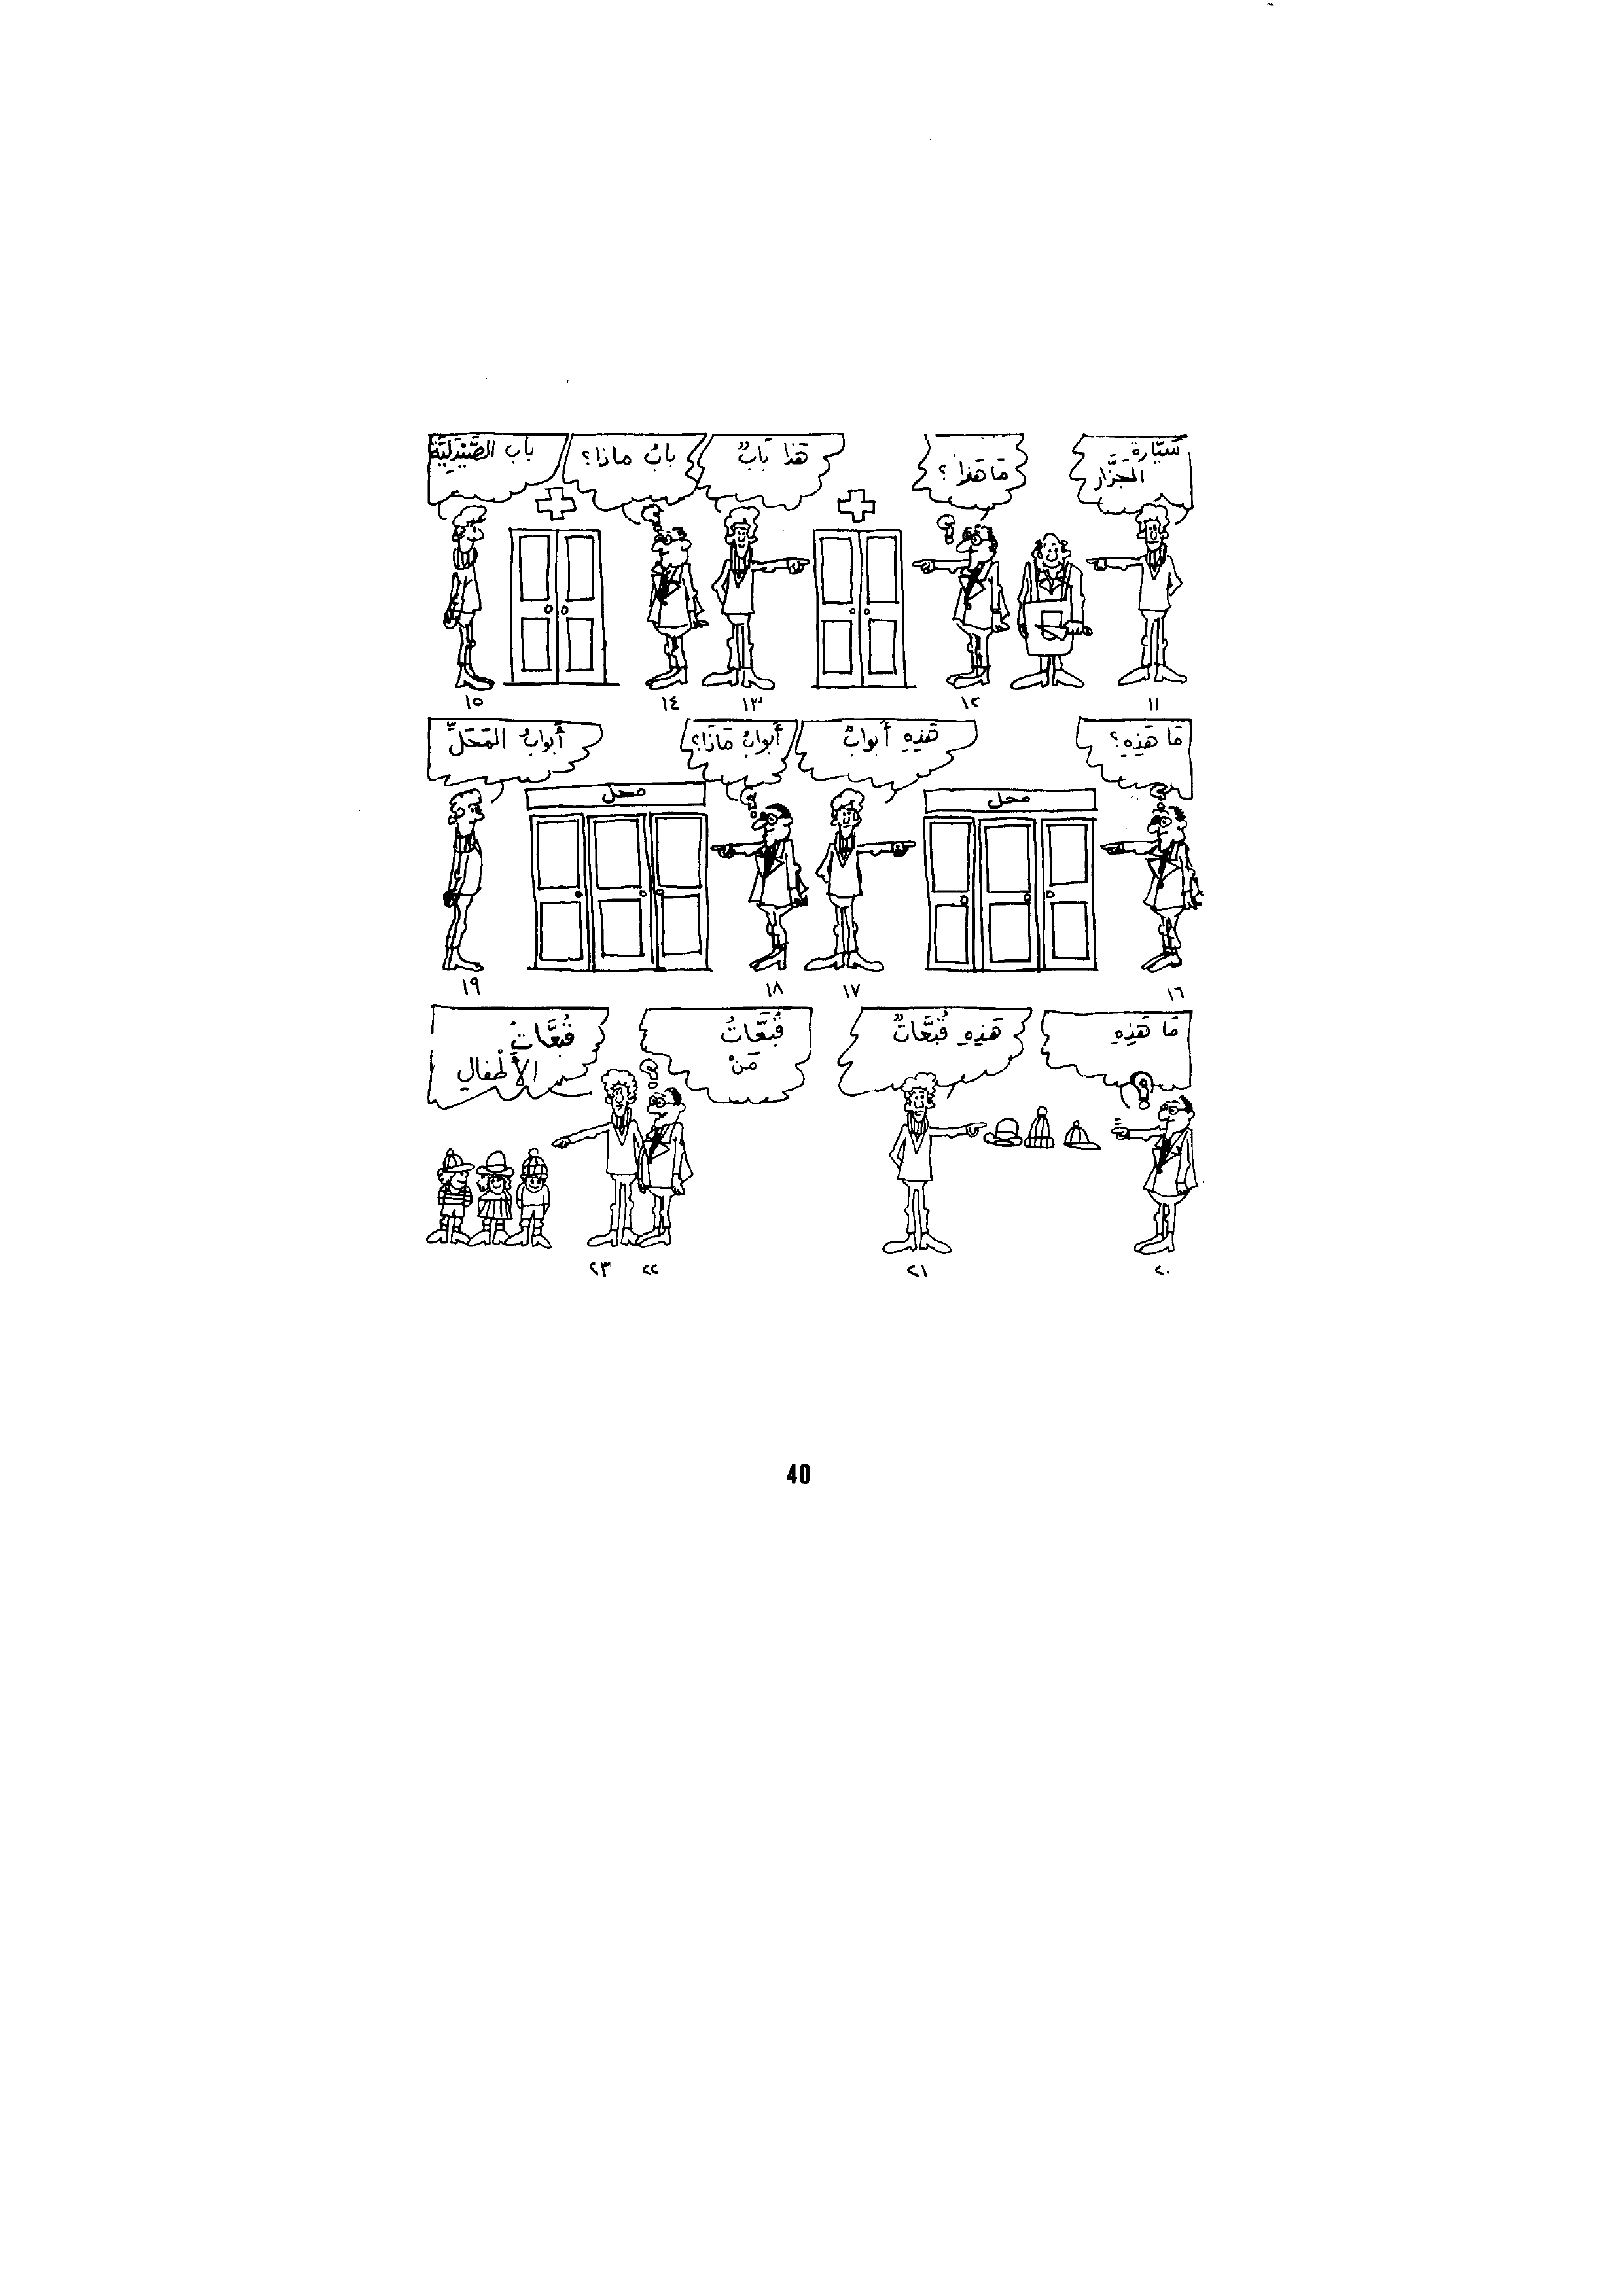 سَيَّارة
الجَزَّار
مَا هَذا ؟
هَذا بَابٌ
بابُ ماذا؟
باب الصَّيْدَلِيَّة
١١
١٢
١٣
١٤
١٥
مَا هَذِهِ؟
هَذِهِ أَبوابٌ
أَبوابُ مَاذَا؟
أَبوابُ المَحَلِّ
محل
محل
١٦
١٧
١٨
١٩
مَا هَذِهِ
هَذِهِ قُبَّعَاتٌ
قُبَّعَاتُ
مَنْ
قُبَّعَاتُ
الأَطْفالِ
٢٠
٢١
٢٢
٢٣
40